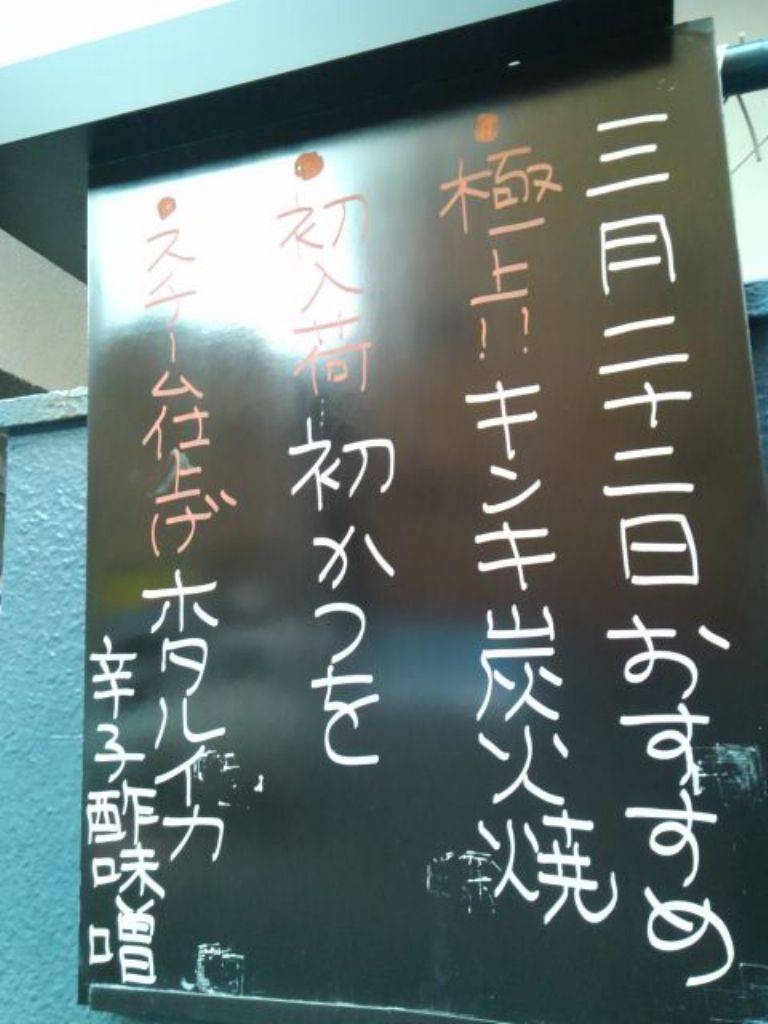 三月二十二日おすすめ
・極上!!キンキ炭火焼
・初入荷初かつを
・スチーム仕上げホタルイカ
辛子酢味噌